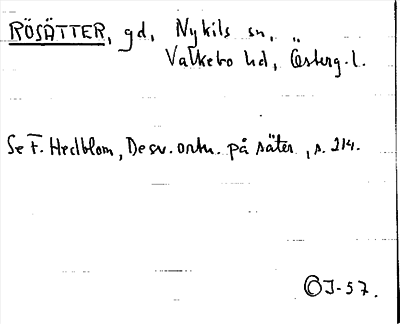 RÖSÄTTER, gd, Nykils sn,
Valkebo hd, Österg.l.
Se F. Hedblom, De sv. ortn. på säter, s. 214.
ÖJ-57.